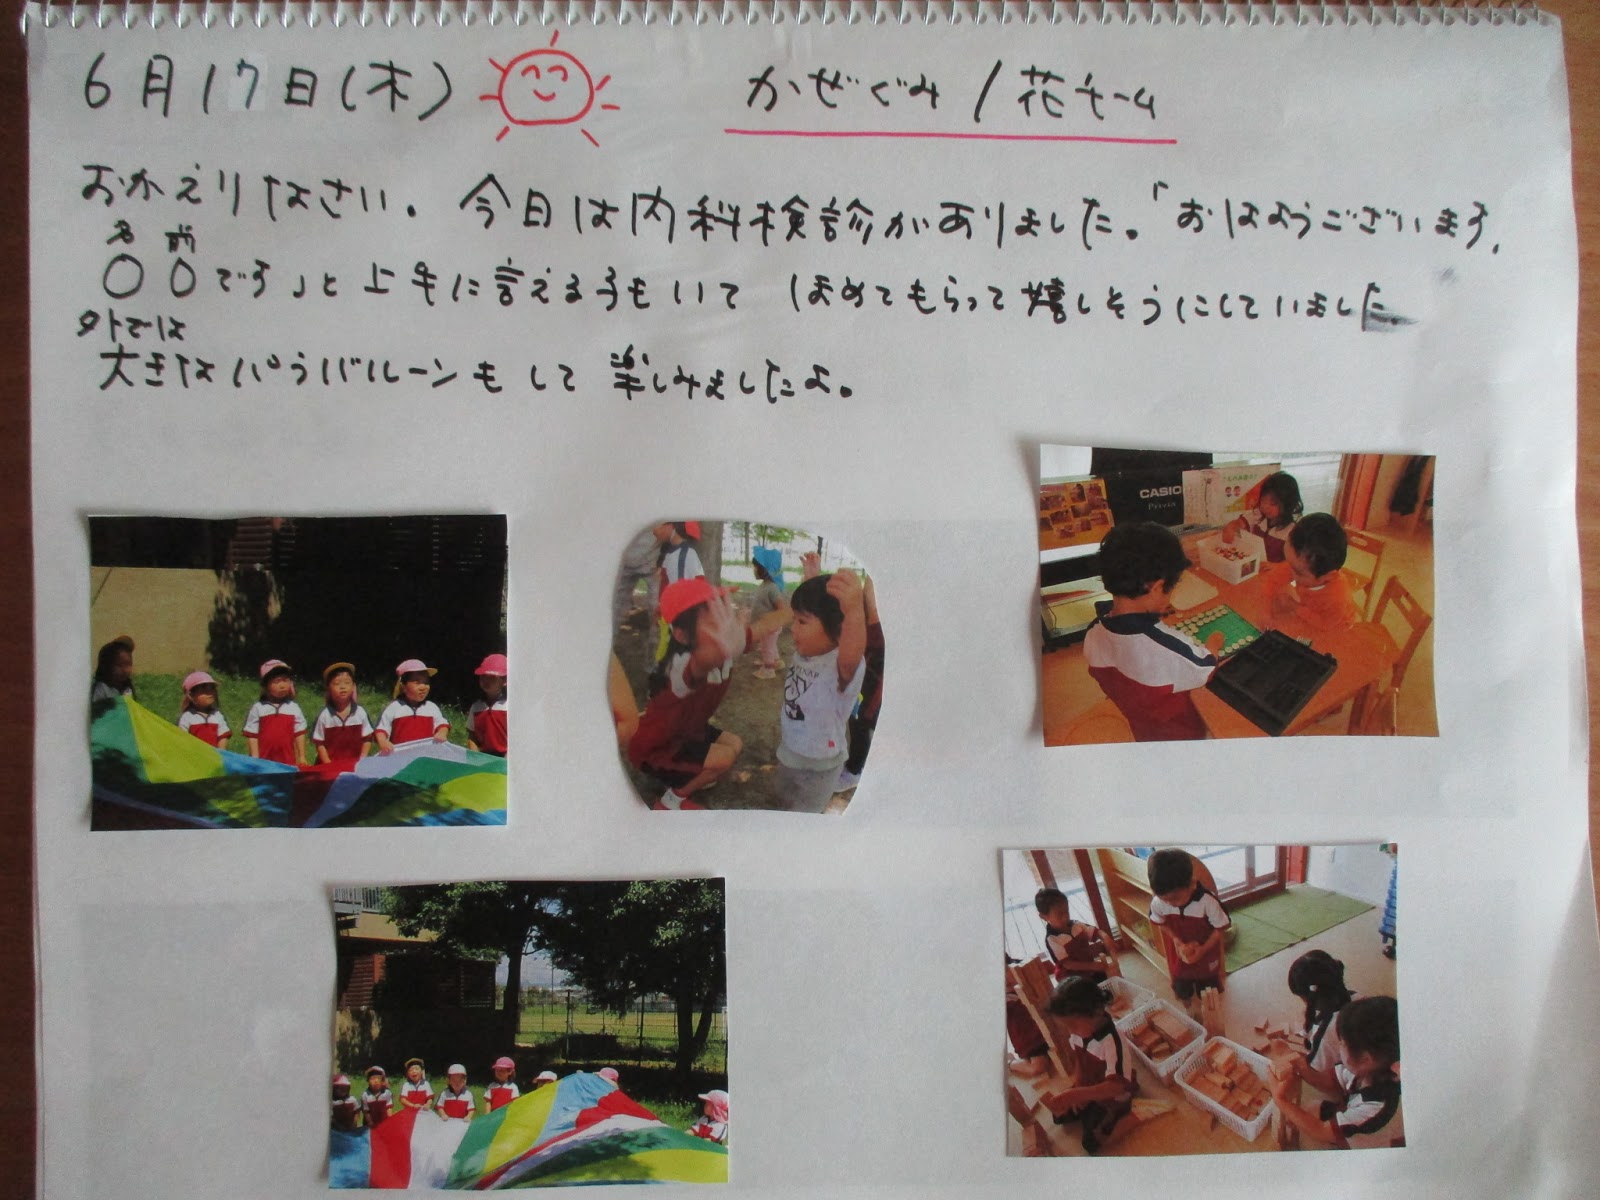 6月17日(木)
かぜぐみ / 花チーム
おかえりなさい。今日は内科検診がありました。「おはようございます、
名前
〇〇です」と上手に言える子もいて ほめてもらって嬉しそうにしていました。
外では
大きなパラバルーンもして 楽しみましたよ。
CASIO
Privia